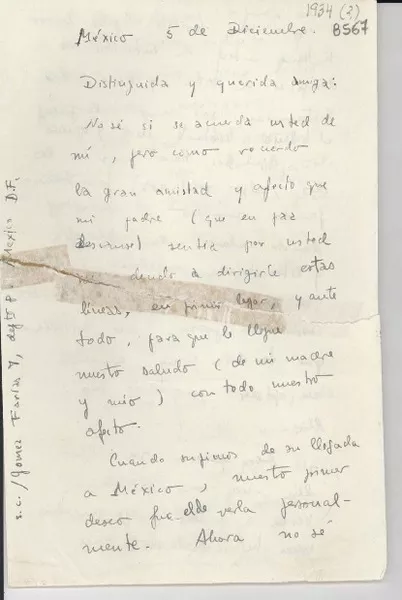 1934 (?)
8567
México 5 de Diciembre.
Distinguida y querida amiga:
No sé si se acuerda usted de
mí, pero como recuerdo
la gran amistad y afecto que
mi padre (que en paz
descanse) sentía por usted
dirigirle estas
líneas, en primer lugar, y ante
todo, para que le llegue
nuestro saludo (de mi madre
y mío) con todo nuestro
afecto.
Cuando supimos de su llegada
a México, nuestro primer
deseo fue el de verla personal-
mente. Ahora no sé
s.c./ Gomez Farías 7, depto P. México D.F.